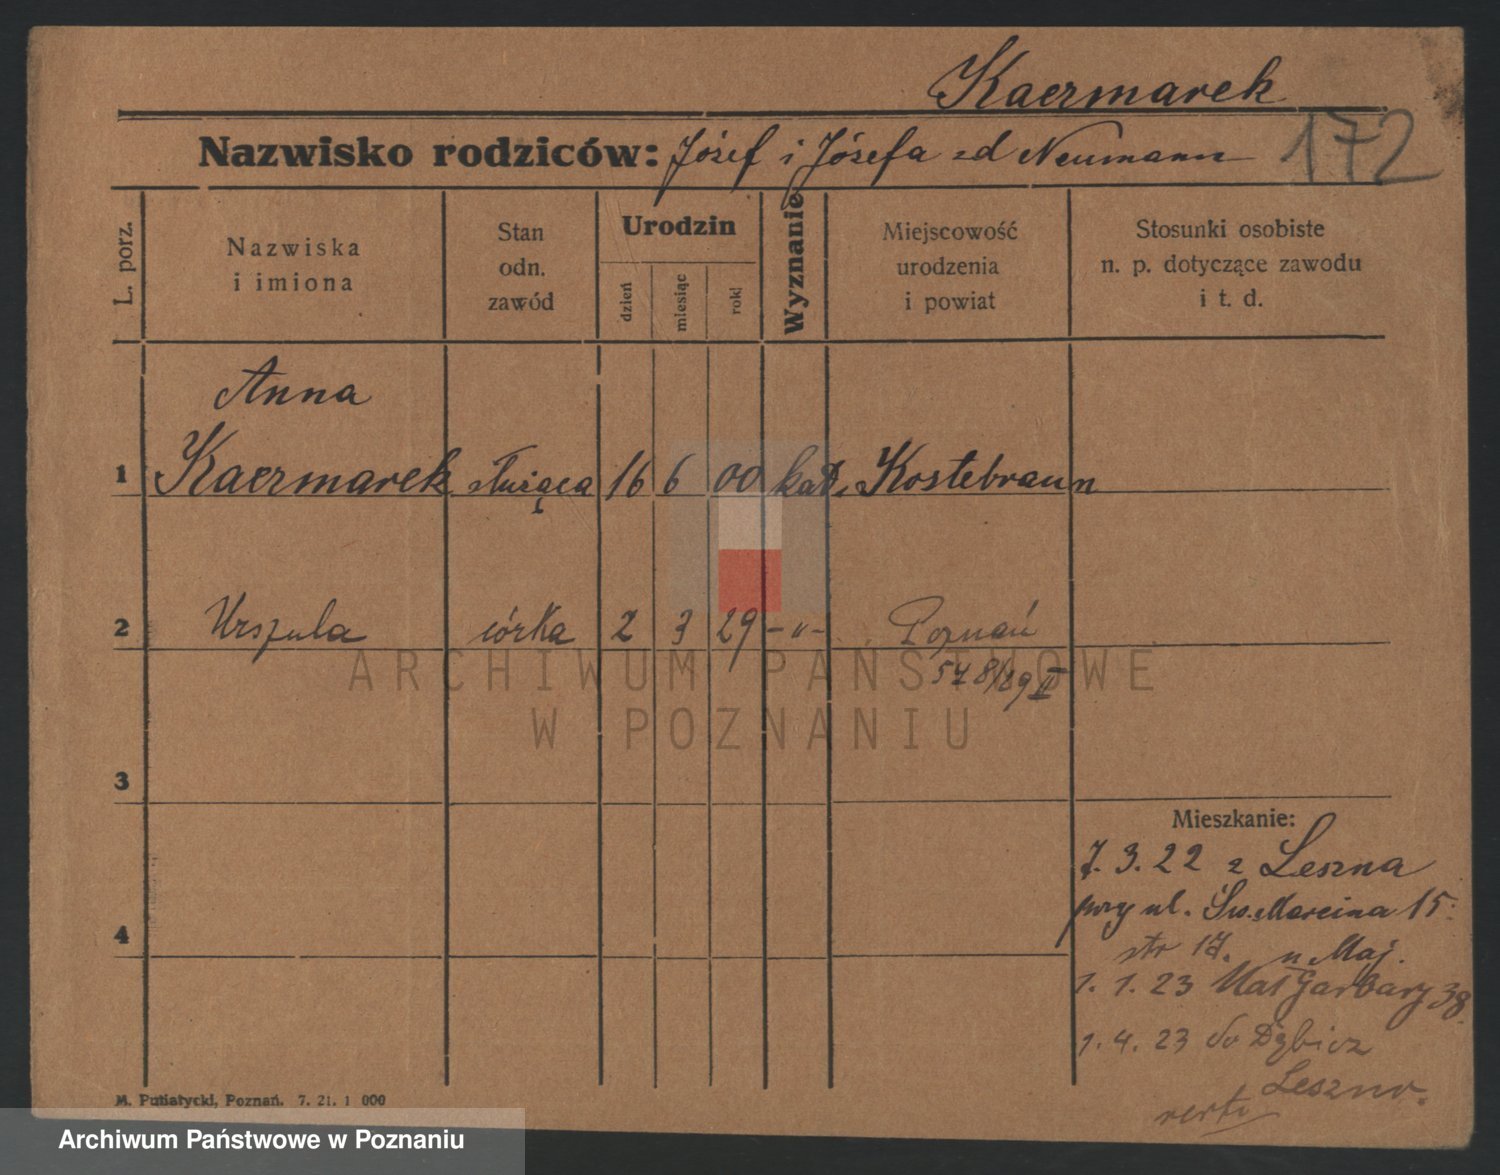 Kaczmarek
172
Nazwisko rodziców: Józef i Józefa zd Neumann
L. porz.
Nazwiska
i imiona
Stan
odn.
zawód
Urodzin
dzień
miesiąc
rok
Wyznanie
Miejscowość
urodzenia
i powiat
Stosunki osobiste
n. p. dotyczące zawodu
i t. d.
Anna
1 Kaczmarek służąca 16 6 00 kat. Kostebraun
2 Urszula córka 2 3 29 -"- Poznań
578/29 II
ARCHIWUM PAŃSTWOWE
W POZNANIU
3
Mieszkanie:
7. 3. 22 z Leszna
przy ul. Św. Marcina 15.
4
str 17. u Maj.
1. 1. 23 Małgarbary 38.
1. 4. 23 do
Leszno.
verte
M. Putiatycki, Poznań. 7. 21. 1 000
Archiwum Państwowe w Poznaniu